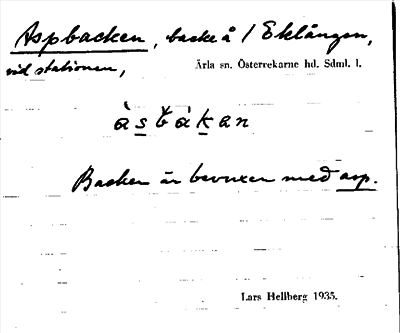 Aspbacken, backe å / Eklången,
vid stationen,
Ärla sn. Österrekarne hd. Sdml. l.
àsbàkan
Backen är bevuxen med asp.
Lars Hellberg 1935.